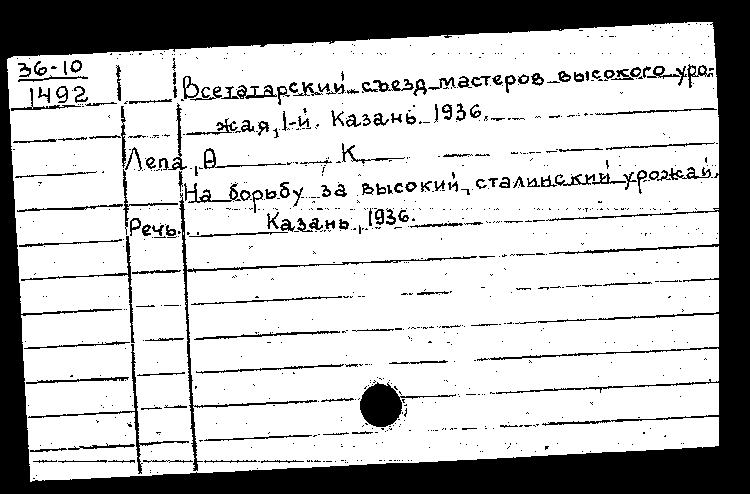 36-10
1492
Всетатарский съезд мастеров высокого уро-
жая, 1-й. Казань. 1936.
Лепа, А , К.
На борьбу за высокий, сталинский урожай.
Речь. Казань, 1936.